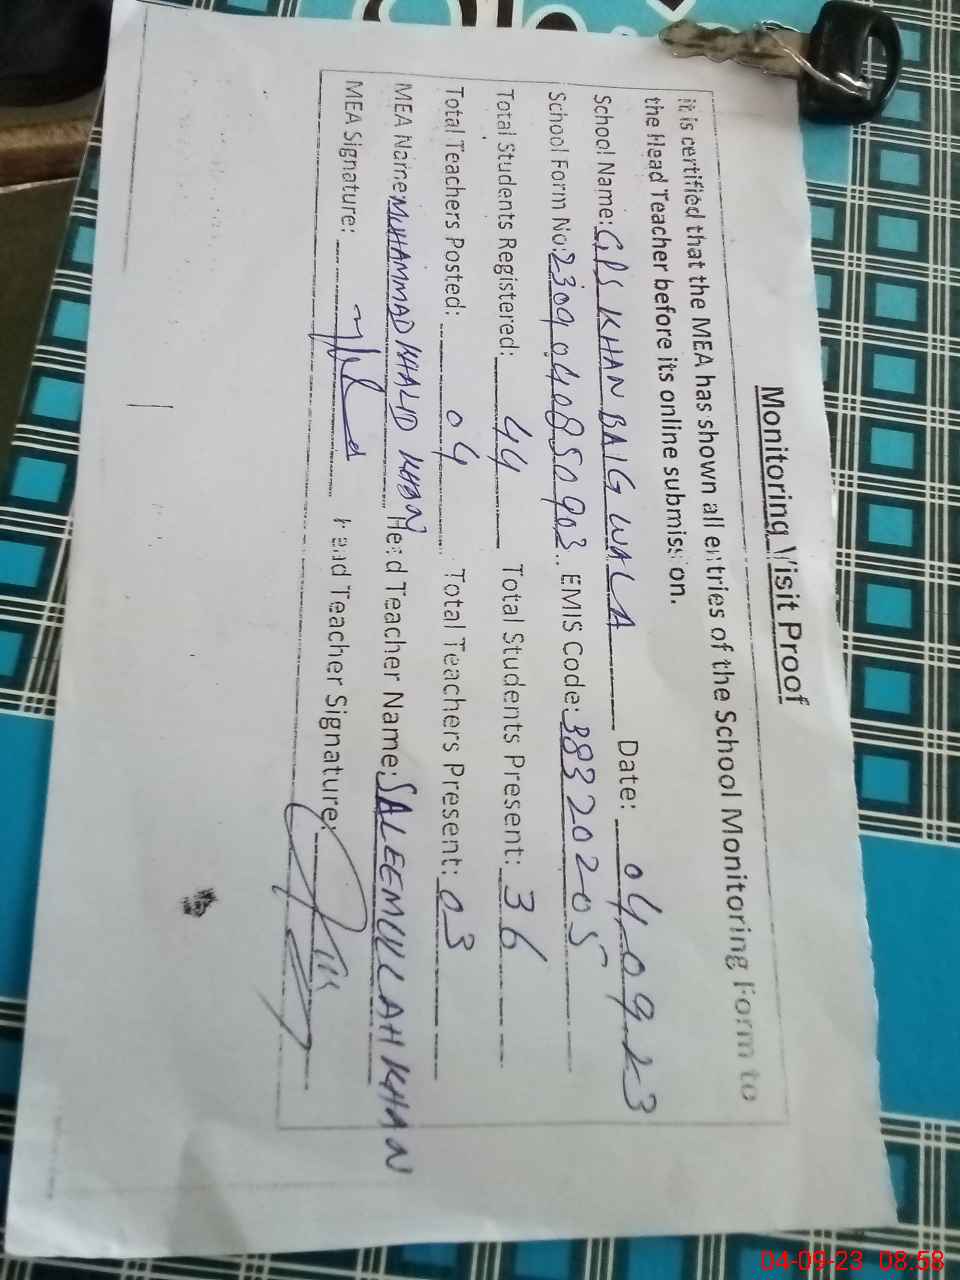 Monitoring Visit Proof
it is certified that the MEA has shown all entries of the School Monitoring Form to
the Head Teacher before its online submission.
School Name: GPS KHAN BAIG WALA Date: 04.09.23
School Form No: 2309040850903 EMIS Code: 38320205
Total Students Registered: 44 Total Students Present: 36
Total Teachers Posted: 04 Total Teachers Present: 03
MEA Name MUHAMMAD KHALID KHAN Head Teacher Name: SALEEMULLAH KHAN
MEA Signature: Head Teacher Signature:
04-09-23 08:58